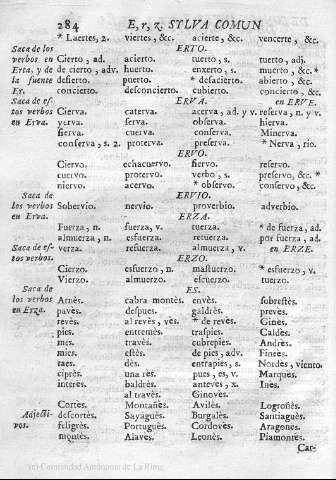 284 E, r, z. SYLVA COMUN
* Laertes, 2. viertes, &c. acierte, &c. vencerte, &c.
ERTO.
Saca de los verbos en Erta, y de la fuente Er.
Cierto, ad. acierto. tuerto, s. tuerto, adj.
de cierto, adv. huerto. enxerto, s. muerto, &c. *
desierto. puerto. * desacierto. abierto, &c.
concierto. desconcierto. cubierto. concierto, &c.
ERVA.
Saca de estos verbos en Erva.
en ERVE.
Cierva. caterva. acerva, ad. y v. reserva, n. y v.
yerva. serva. observa. hierva.
sierva. cuerva. conserva. Minerva.
conserva, s. 2. proterva. preserva. * Nerva, rio.
ERVO.
Ciervo. echacuervo. siervo. reservo.
cuervo. protervo. verbo, s. preservo, &c. *
niervo. acervo. * observo. conservo, &c.
ERVIO.
Saca de los verbos en Erva.
Sobervio. nervio. proverbio. adverbio.
ERZA.
Fuerza, n. fuerza, v. tuerza. * de fuerza, ad.
almuerza, n. esfuerza. refuerza. por fuerza, ad.
Saca de estos verbos.
verza. refuerza. almuerza, v. en ERZE.
ERZO.
Cierzo. esfuerzo, n. mastuerzo. * esfuerzo, v.
Vierzo. almuerzo. escuerzo. tuerzo.
ES.
Saca de los verbos en Erza.
Arnès. cabra montès. envès. sobrestès.
pavès. despues. galdrès. prevès.
revès. al revès, vès. * de revès. Ginès.
pies. entremès. traspies. Caldès.
mes. través. cubrepies. Andrès.
mies. estès. de pies, adv. Fineès.
zaes. dès. entrapies, s. Nordès, viento.
ciprès. una res. pues, es, v. Marquès.
interès. baldrès. anteves, x. Ines.
al través. Ginoves.
Cortes. Montañes. Avilès. Logroñès.
Adjectivos.
descortès. Sayaguès. Burgalès. Santiaguès.
feligrès. Portuguès. Cordovès. Aragones.
montès. Alavès. Leonès. Piamontès.
Car-
(c) Comunidad Autónoma de La Rioja